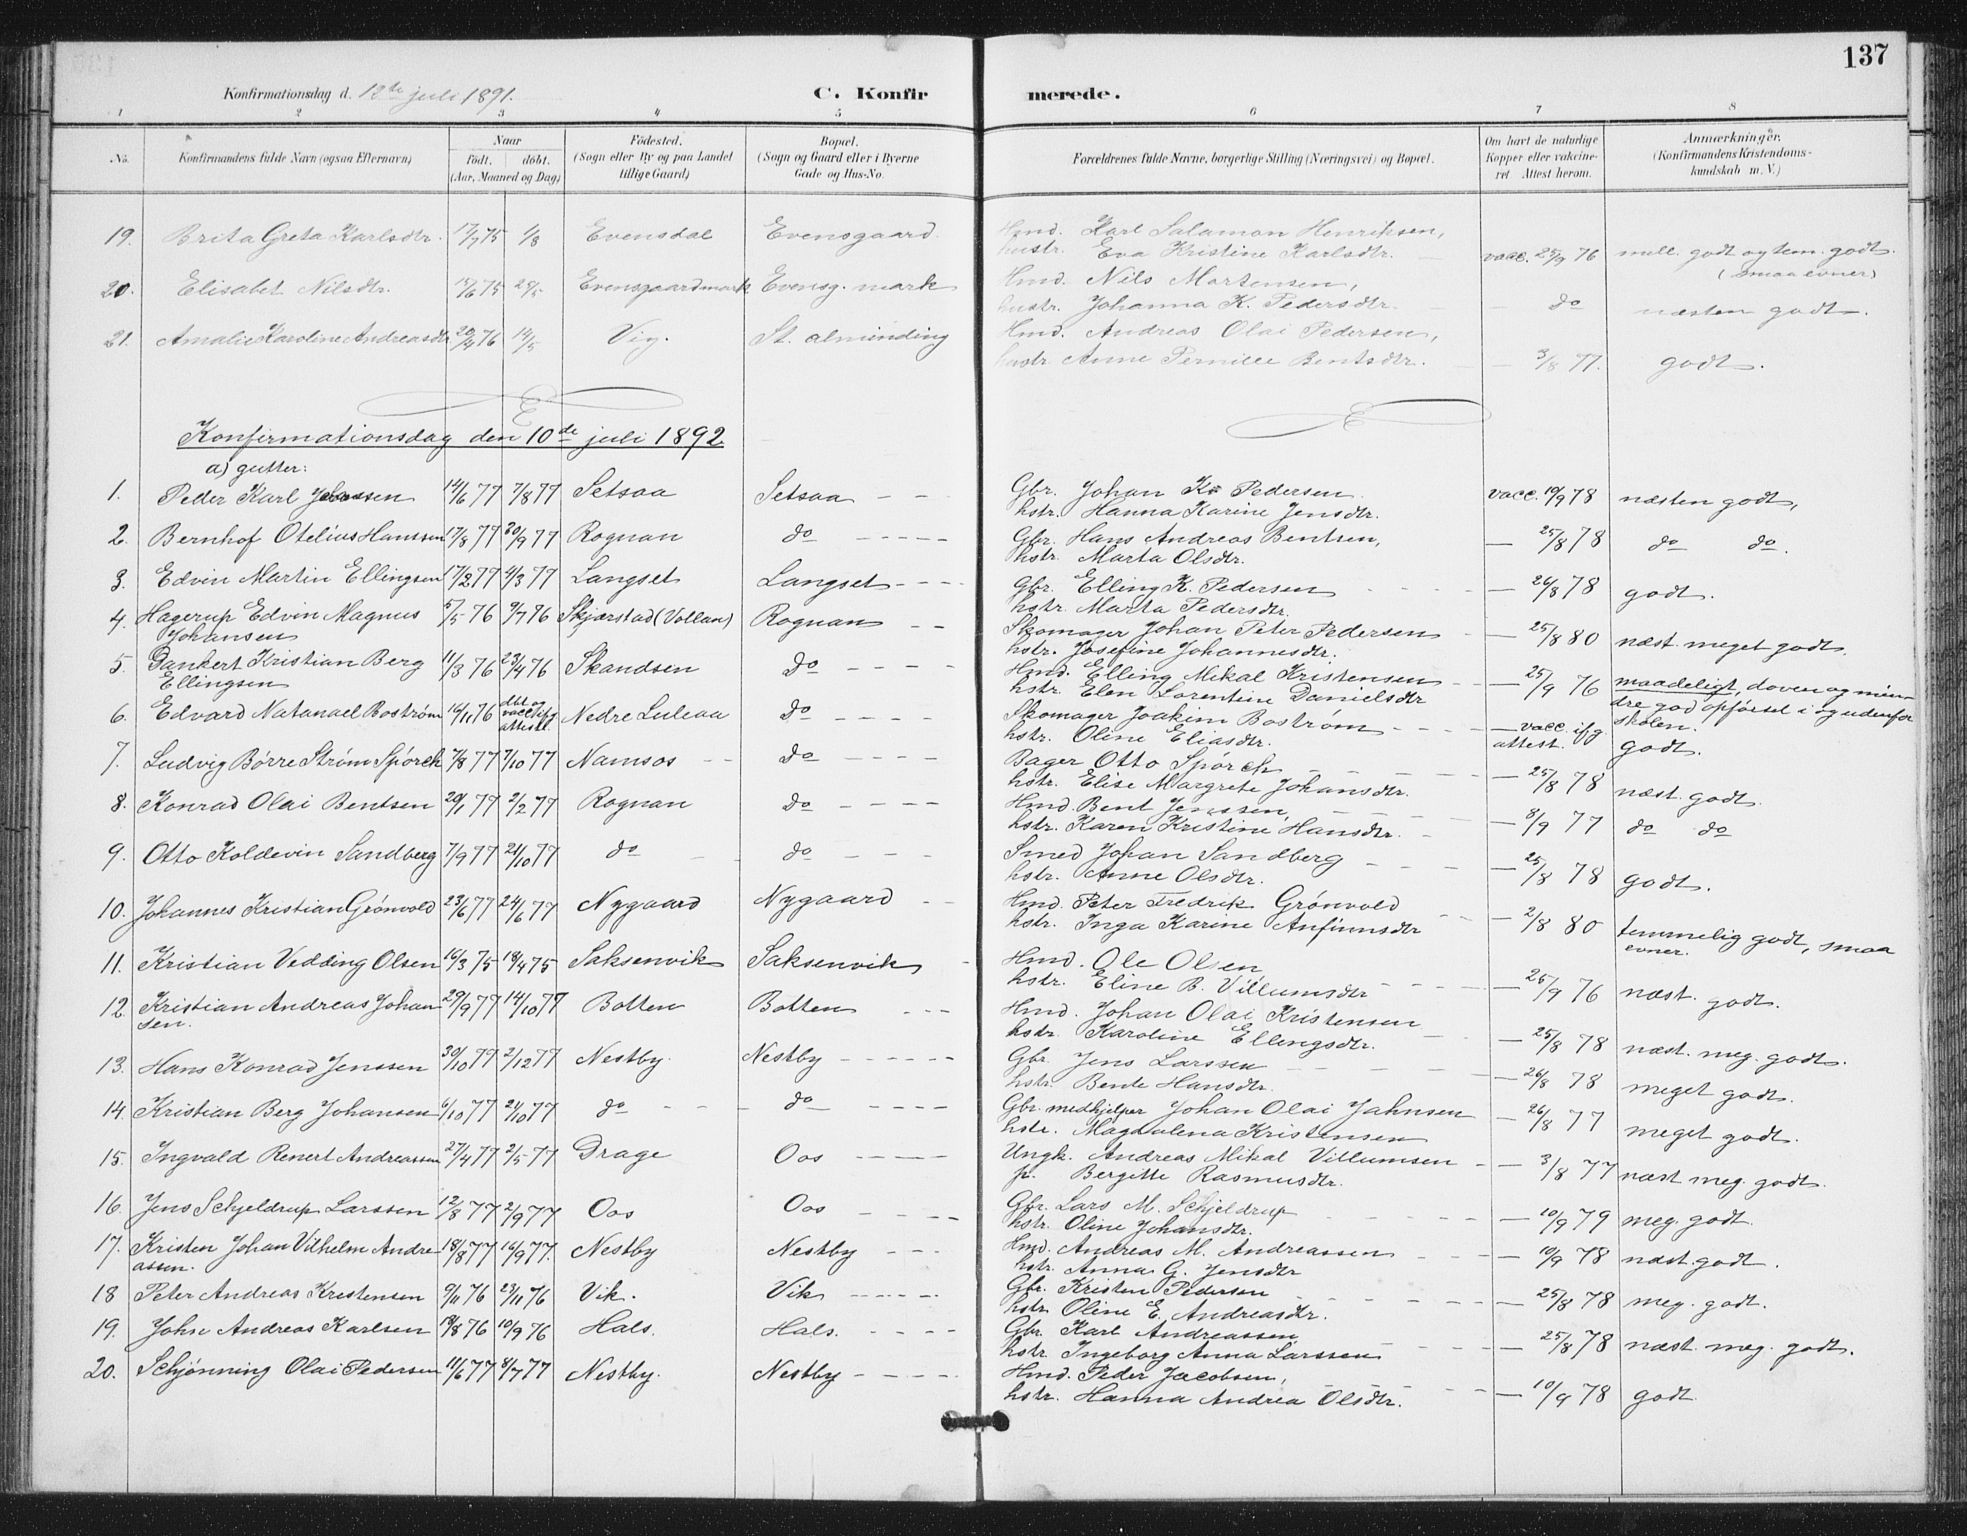 137
Konfirmationsdag d. 12te juli 1891. C. Konfirmerede.
1 2 3 4 5 6 7 8
No. Konfirmandens fulde Navn (ogsaa Efternavn) Naar født. døbt. (Aar, Maaned og Dag) Fødested. (Sogn eller By og paa Landet tillige Gaard) Bopæl. (Sogn og Gaard eller i Byerne Gade og Hus-No. Forældrenes fulde Navne, borgerlige Stilling (Næringsvei) og Bopæl. Om havt de naturlige Kopper eller vakcineret Attest herom. Anmærkninger. (Konfirmandens Kristendomskundskab m. V.)
19. Brita Greta Karlsdtr. 17/7 75 1/8 Evensdal Evensgaard Hmd. Karl Salamon Henriksen,
hustr. Eva Kristine Karlsdtr. vacc. 25/9 76 mell. godt og tem. godt. (smaa evner)
20. Elisabet Nilsdtr. 15/6 75 29/5 Evensgaardmark Evensg. mark Hmd. Nils Mortensen,
hustr. Johanna K. Pedersdtr. do næsten godt.
21. Amalie Karoline Andreasdtr 20/4 76 14/5 Vig. St. alminding Hmd. Andreas Olai Pedersen,
hustr. Anne Pernille Bentsdtr. 3/8 77. godt.
Konfirmationsdag den 10de juli 1892.
a) gutter:
1. Peder Karl Johansen 14/6 77 7/8 77 Setsaa Setsaa Gbr. Johan Kr Pedersen
hstr. Hanna Karine Jensdtr. vacc. 19/9 78 næsten godt,
2. Bernhof Otelius Hanssen 17/8 77 30/9 77 Rognan do Gbr. Hans Andreas Bentsen,
hstr. Marta Olsdtr. 25/8 78 do do.
3. Edvin Martin Ellingsen 17/2 77 4/3 77 Langset Langset Gbr. Elling K. Pedersen
hstr. Marta Pedersdtr. 26/8 78 godt.
4. Hagerup Edvin Magnus Johansen 5/5 76 9/7 76 Skjerstad (Vollan) Rognan Skomager Johan Peter Pedersen
hstr. Josefine Johannesdtr. 25/8 80 næst. meget godt.
5. Dankert Kristian Berg Ellingsen 11/3 76 23/4 76 Skandsen do Hmd. Elling Mikal Kristensen
hstr. Elen Lorentine Danielsdtr 25/9 76 maadeligt, doven og mindre god opførsel i og udenfor skolen.
6. Edvard Natanael Boström 16/11 76 dbt og vacc. ifg attest. Nedre Luleaa do Skomager Joakim Boström
hstr. Oline Eliasdtr. vacc. ifg attest. godt.
7. Ludvig Børre Strøm Spørck 7/8 77 7/10 77 Namsos do Bager Otto Spørck
hstr. Elise Margrete Johansdtr. 25/8 78 næst. godt.
8. Konrad Olai Bentsen 20/1 77 2/2 77 Rognan do Hmd. Bent Jenssen,
hstr. Karen Kristine Hansdtr. 8/9 77 do do
9. Otto Koldevin Sandberg 7/9 77 21/10 77 do do Smed Johan Sandberg
hstr. Anne Olsdtr. 25/8 78 godt.
10. Johannes Kristian Grønvold 23/6 77 24/6 77 Nygaard Nygaard Hmd. Peter Fredrik Grønvold
hstr. Inga Karine Anfinnsdtr 2/8 80 temmelig godt, smaa evner.
11. Kristian Vedding Olsen 16/3 75 18/4 75 Saksenvik Saksenvik Hmd. Ole Olsen
hstr. Eline B. Villumsdtr 25/9 76 næst. godt.
12. Kristian Andreas Johansen. 29/9 77 14/10 77 Botten Botten Hmd. Johan Olai Kristensen
hstr. Karoline Ellingsdtr. 25/8 78 næst. meg. godt.
13. Hans Konrad Jenssen 30/10 77 2/12 77 Nestby. Nestby Gbr. Jens Larssen
hstr. Bende Hansdtr. 26/8 78 meget godt.
14. Kristian Berg Johansen 6/10 77 21/10 77 do do Gbr. medhjelper Johan Olai Jahnsen
hstr. Magdalena Kristensen 26/8 77 meget godt.
15. Ingvald Renert Andreassen 27/4 77 2/5 77 Drage Oos Ungk. Andreas Mikal Villumsen
p. Bergitte Rasmusdtr. 3/8 77 næst meg. godt.
16. Jens Schjeldrup Larssen 12/8 77 2/9 77 Oos Oos Gbr. Lars M. Schjeldrup
hstr. Oline Johansdtr. 10/9 79 meg. godt.
17. Kristen Johan Vilhelm Andreassen. 18/8 77 16/9 77. Nestby Nestby Hmd. Andreas M. Andreassen
hstr. Anna G. Jensdtr 10/9 78 næst. godt.
18 Peter Andreas Kristensen 9/11 76 23/11 76 Vik. Vik Gbr. Kristen Pedersen
hstr. Oline E. Andreasdtr. 25/8 78 meg. godt.
19. John Andreas Karlsen 19/8 76 10/9 76 Hals. Hals. Gbr. Karl Andreassen
hstr. Ingeborg Anna Larssen 25/8 78 næst. meg. godt.
20. Schjønning Olai Pedersen 11/6 77 8/7 77 Nestby. Nestby Hmd. Peder Jacobsen,
hstr. Hanna Andrea Olsdtr. 10/9 78 godt